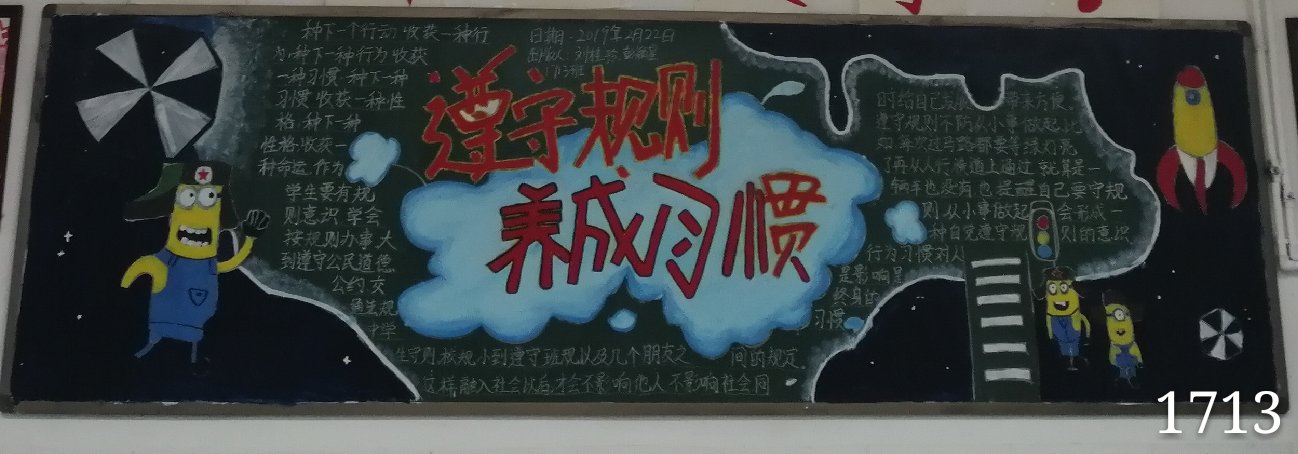 种下一个行动 收获一种行
为 种下一种行为 收获
一种习惯 种下一种
习惯 收获一种性
格 种下一种
性格 收获一
种命运 作为
学生要有规
则意识 学会
按规则办事 大
到遵守公民道德
公约 交
通法规
中学
生守则 校规 小到遵守班规以及几个朋友之 间的规定
这样融入社会以后才会不影响他人 不影响社会
日期：2019年2月22日
遵守规则
养成习惯
时给自己
遵守规则不妨从小事做起 比
如 每次过马路都要等绿灯亮
了再从人行横道上通过 就算是一
辆车也没有 也提醒自己要守规
则 从小事做起 会形成一
种自觉遵守规则的意识
行为习惯对人
是影响是
终身
习惯
1713